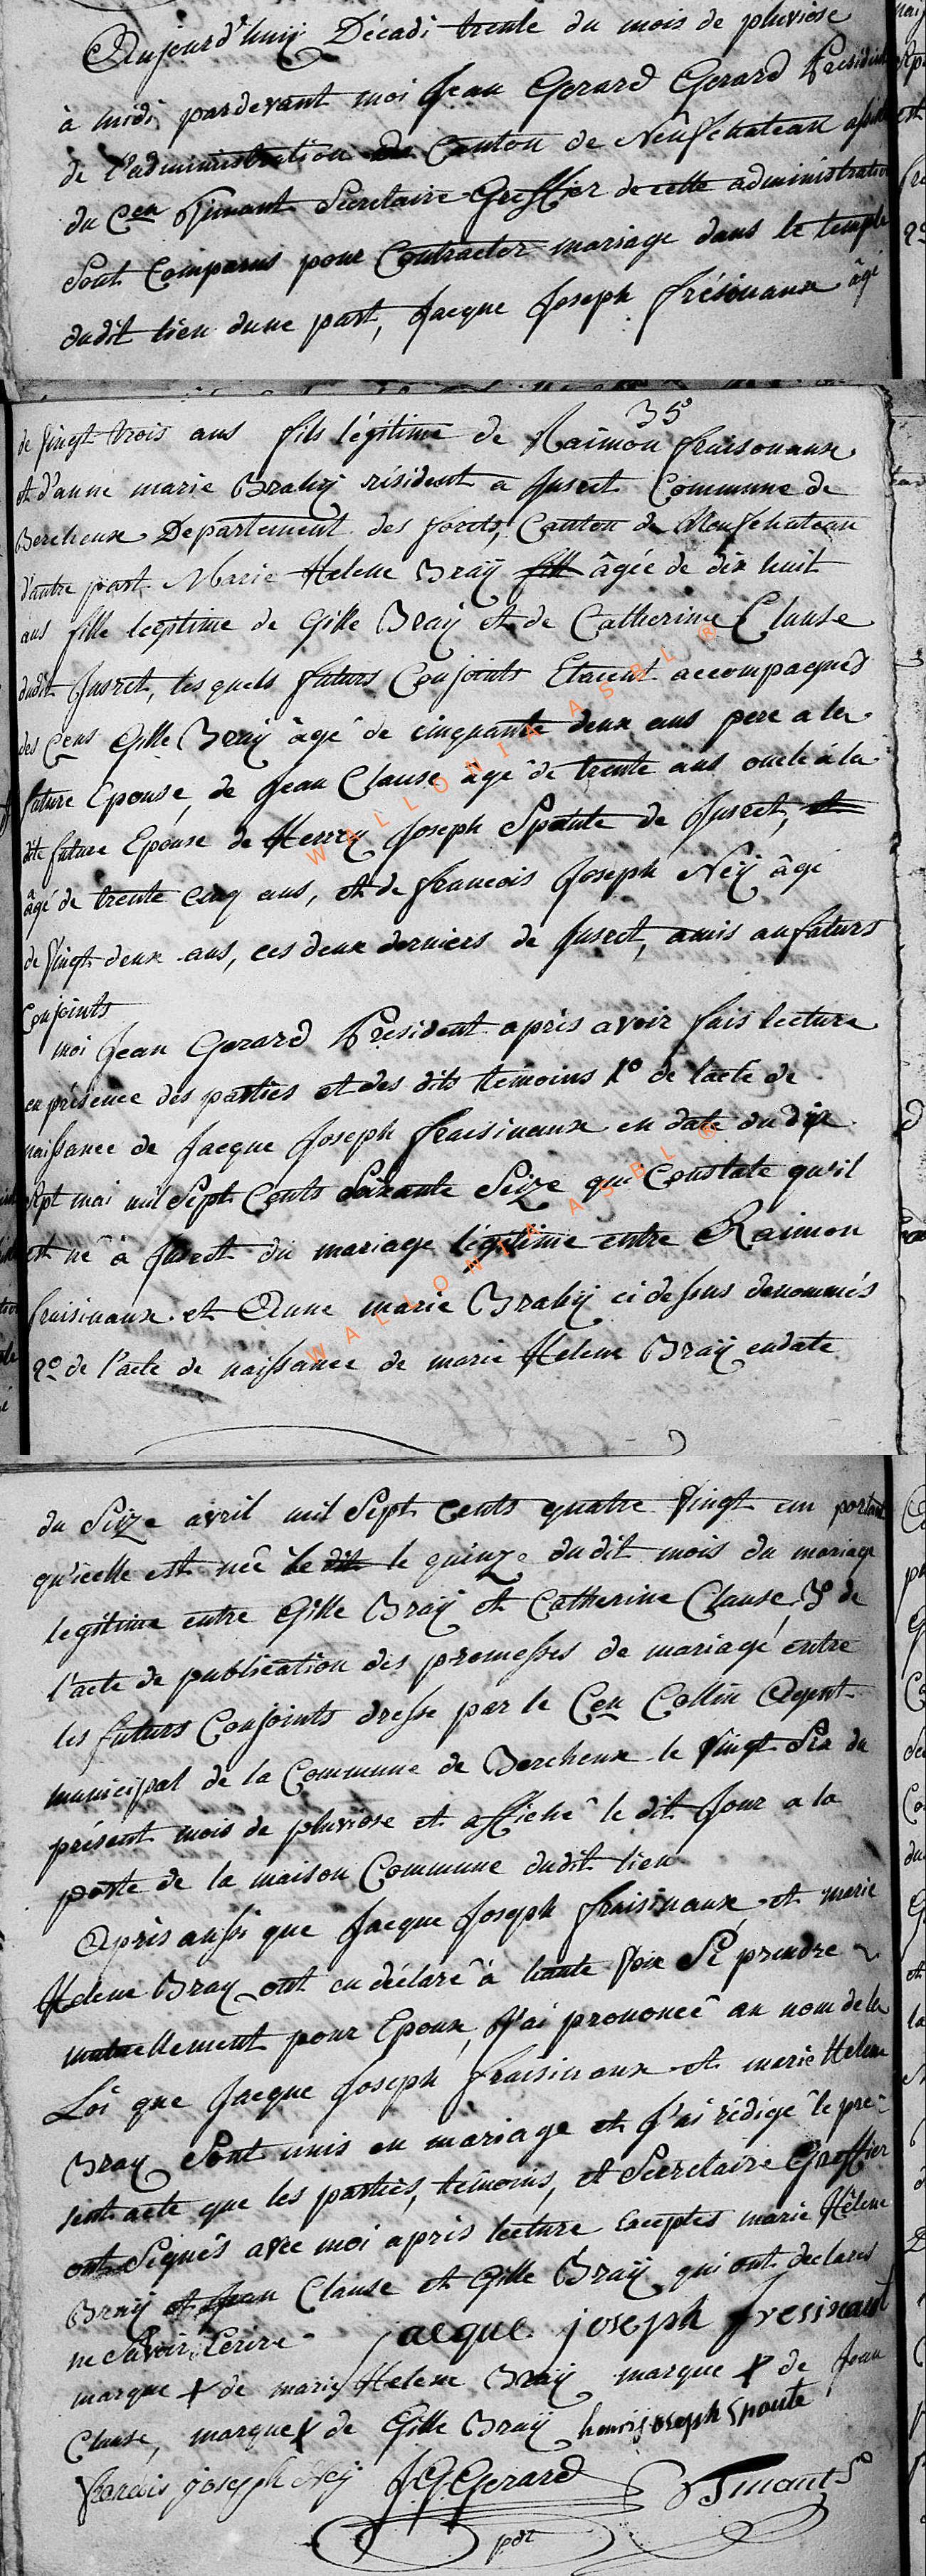 Aujourd'huiy Décadi trente du mois de pluviose
à midi pardevant moi Jean Gerard Gerard President
de l'administration du Canton de Neufchateau
du Cen Secretaire Greffier de cette administration
Sont Comparus pour Contracter mariage dans le temple
dudit lieu dune part, Jacque Joseph frésinaux âgé
35
de vingt trois ans fils légitime de Raimon fraisonaux
et d'anne marie Brahy résident a Jusret Commune de
Bercheux Departement des forets, Canton de Neufchateau
d'autre part Marie Helene Braÿ fill âgée de dix huit
ans fille legitime de Gille Braÿ et de Catherine Clause
dudit Jusret, les quels futurs Conjoints Etaient accompagnés
des Cens Gille Braÿ âgé de cinquante deux ans pere a la
future Epouse, de Jean Clause agé de trente ans oncle à la
dite future Epouse de Henry Joseph Spoûte de Jusret, et
âgé de trente cinq ans, et de francois Joseph Neÿ âgé
de vingt deux ans, ces deux derniers de Jusret, amis au futurs
Conjoints
moi Jean Gerard President après avoir fais lecture
en présence des parties et des dits temoins 1o de lacte de
naissance de Jacque Joseph fraisinaux en date du dix
Sept mai mil Sept Cents Soixante Seize qui Constate qu'il
est né à Jusret du mariage légitime entre Raimon
fraisinaux et Anne marie Brahy ci dessus denommés
2o de l'acte de naissance de marie Helene Braÿ en date
du Seize avril mil Sept Cents quatre Vingt un portant
qu'icelle est née le dit le quinze dudit mois du mariage
legitime entre Gille Braÿ et Catherine Clause, 3o de
l'acte de publication des promesses de mariage entre
les futurs Conjoints dresse par le Cen Collin Agent
municipal de la Commune de Bercheux le vingt Six du
présent mois de pluviose et affiché le dit Jour a la
porte de la maison Commune dudit lieu
Après aussi que Jacque Joseph fraisinaux et marie
Helene Bray ont eu déclaré à haute Voix Se prendre
mutuellement pour Epoux, J'ai prononcé au nom de la
Loi que Jacque Joseph fraisinaux et marie Helene
Bray Sont unis en mariage et J'ai rédigé le pré-
sent acte que les parties, témoins, et Secretaire Greffier
ont Signés avec moi apris lecture Exceptes marie Hélene
Braÿ et Jean Clause et Gille Braÿ qui ont declarés
ne Savoir Ecrire jacque joseph fresinaut
marque + de marie Helene Braÿ marque + de Jean
Clause, marque + de Gille Braÿ henri joseph Spoute
francis joseph Neÿ J G Gerard
pdt
WALLONIA ASBL ®
WALLONIA ASBL ®